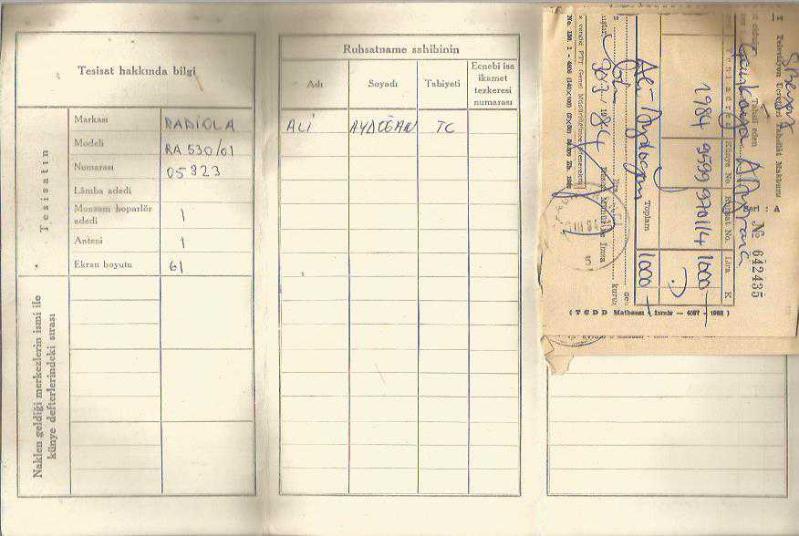 Tesisat hakkında bilgi
Tesisatın
Markası RADİOLA
Modeli RA 530/01
Numarası 05823
Lâmba adedi
Munzam hoparlör adedi 1
Anteni 1
Ekran boyutu 61
Naklen geldiği merkezlerin ismi ile
künye defterlerindeki sırası
Ruhsatname sahibinin
Adı Soyadı Tabiyeti Ecnebi ise ikamet tezkeresi numarası
ALİ AYDOĞAN TC
Televizyon Ücretleri Tahsilât Makbuzu
Tahsil eden
Çankaya Ankara
№ 642435
Künye No. Ruhsat No. Lira K
1984 9599 970114 1000
Toplam 1000
Ali Aydoğan
(TCDD Matbaası, İzmir — 4097 - 1982)